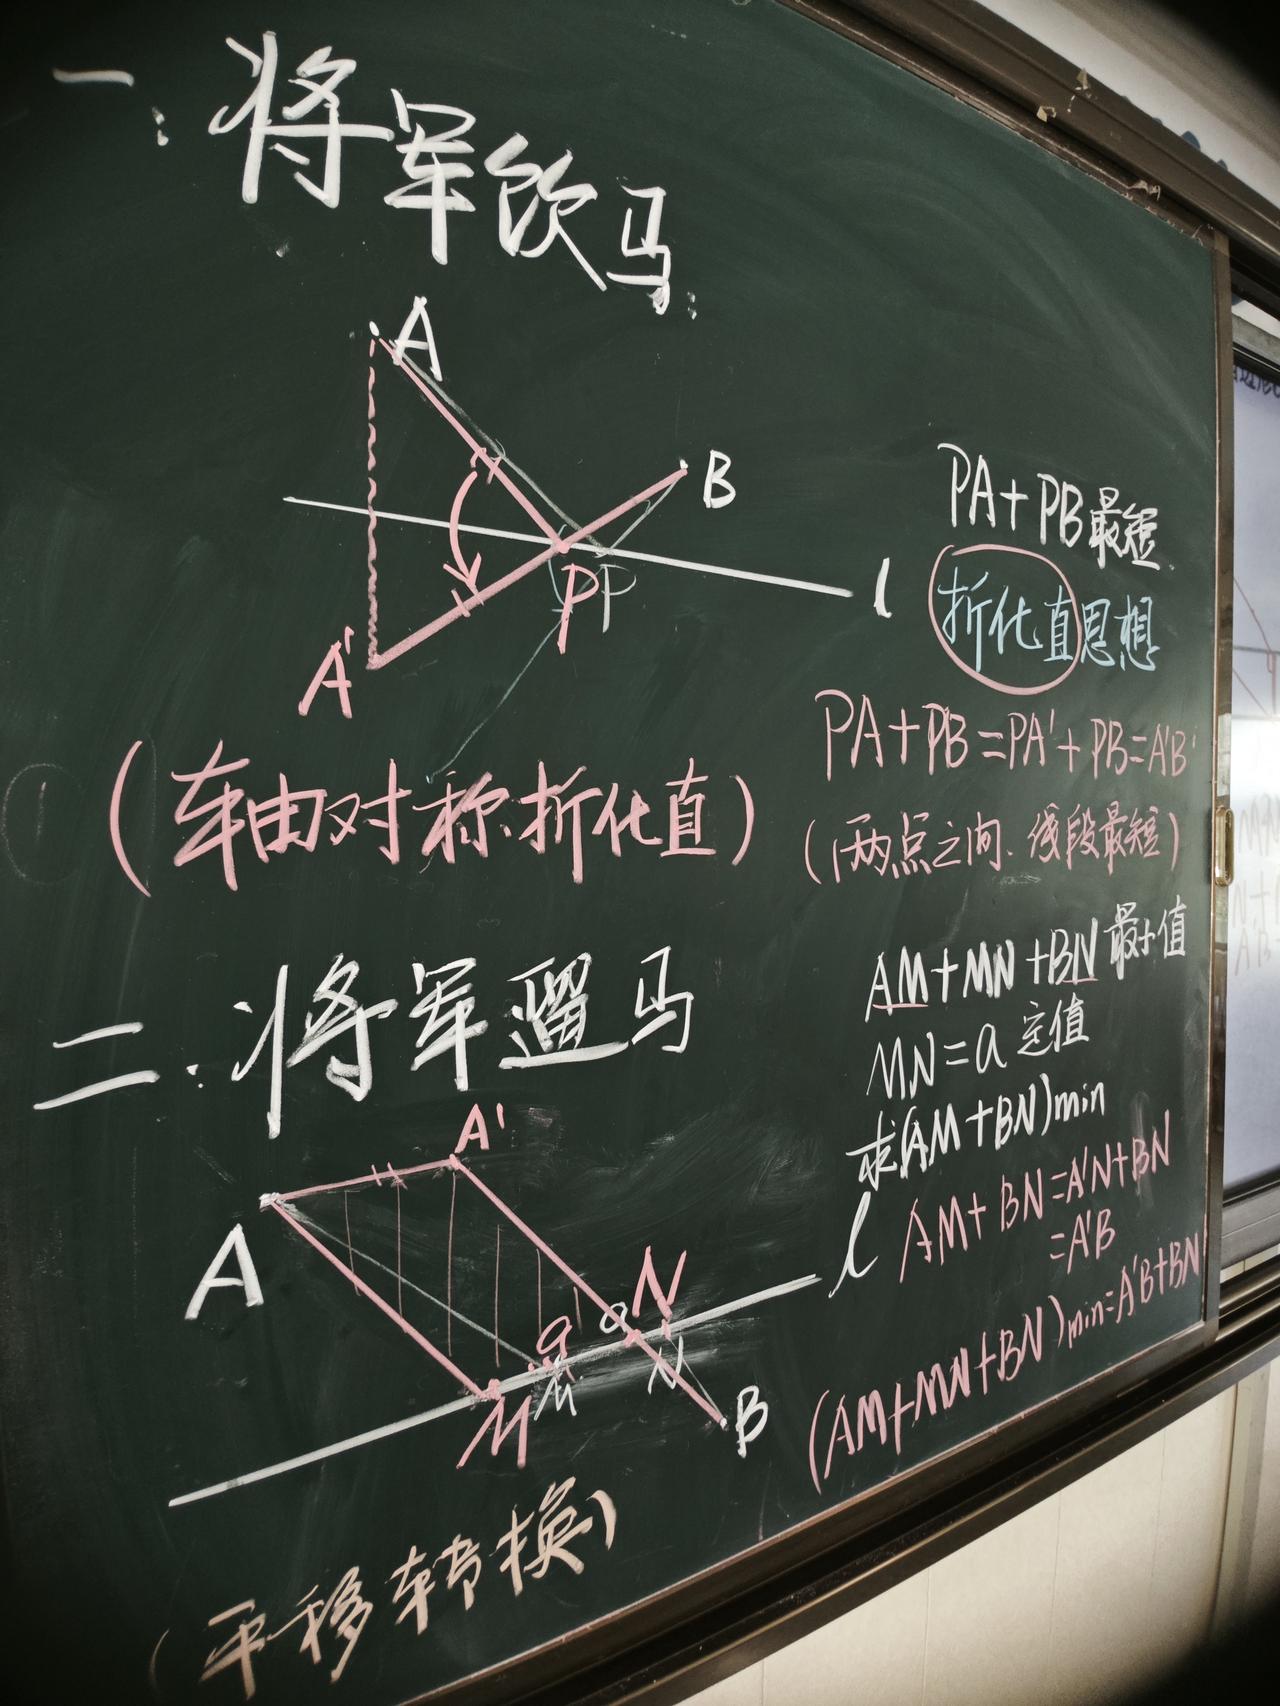 一:将军饮马:
A
B
PP
l
A'
PA+PB最短.
折化直思想
PA+PB=PA'+PB=A'B
(轴对称.折化直)
(两点之间.线段最短)
二:将军遛马
AM+MN+BN最小值
MN=a 定值
求(AM+BN)min
AM+BN=A'N+BN
=A'B
(AM+MN+BN)min=A'B+BN
A'
A
l
N
a
M
M
N
B
(平移转换)